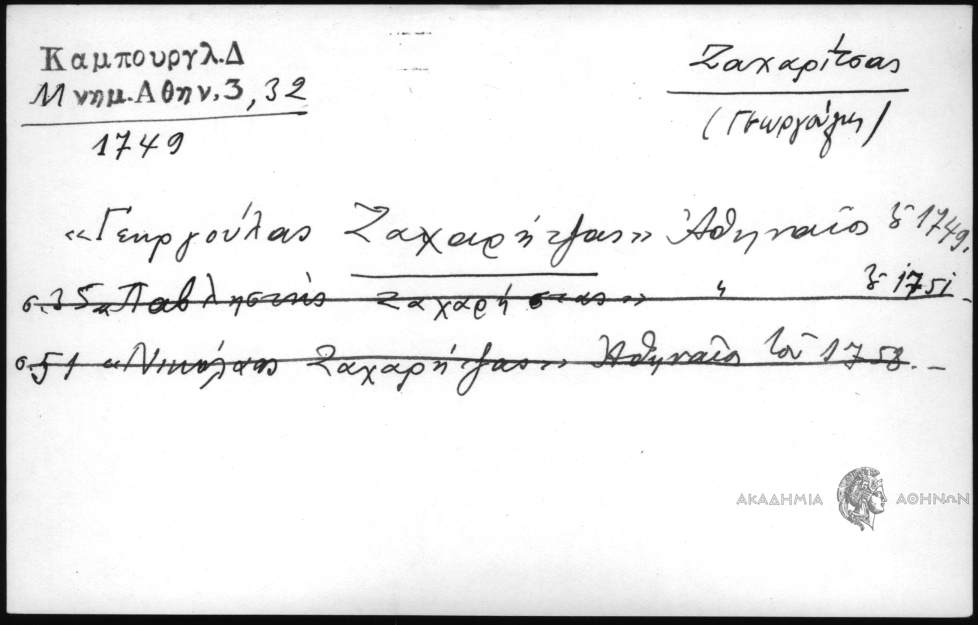 Καμπουργλ.Δ
Μνημ.Αθην.3,32
1749
Ζαχαρίτσας
(Γεωργούλης)
«Γεωργούλας Ζαχαρήτζας» Ἀθηναῖος 1749.
σ.35 Ζαχαρή στας» " 1751
σ.51 «Νικόλαος Ζαχαρήτζας» Ἀθηναῖος τοῦ 1758.
ΑΚΑΔΗΜΙΑ ΑΘΗΝΩΝ